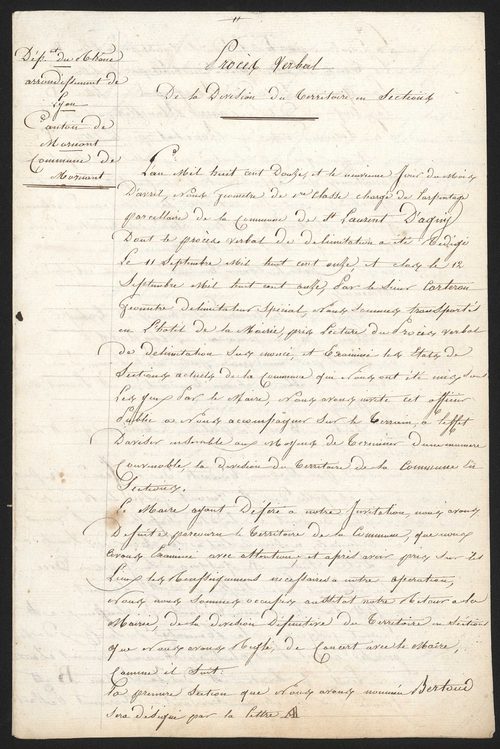 Dép.t du Rhône
arrondissement de
Lyon
Canton de
Mornant
Commune de
Mornant
Procès Verbal
De la Division du Territoire en Sections
L'an Mil huit cent Douze et le neuvieme Jour du Mois
D'avril, Nous Géometre de 1.ere Classe chargé de l'arpentage
parcellaire de la Commune de S.t Laurent D'agny
Dont le procès verbal de délimitation a été Rédigé
Le 11 Septembre Mil huit cent onze, et clos le 12
Septembre Mil huit cent onze, Par le Sieur Carteron
Géometre délimitateur Spécial, Nous Sommes transportés
en l'hotel de la Mairie, pris Lecture du Procès verbal
de délimitation Sus énoncé, et Examiné les états de
Sections actuels de la Commune qui Nous ont été mis sous
Les yeux Par le Maire, Nous avons invité cet officier
Public a Nous accompagner Sur le Terrein, a l'effet
D'aviser ensemble aux Moyens de Terminer d'une maniere
Convenable, la division du Territoire de la Commune En
Sections.
Le Maire ayant Déféré a notre Invitation, nous avons
De suite parcouru le Territoire de la Commune, que nous
avons Examiné avec attention; et après avoir pris sur les
Lieux les Renseignements nécessaires a notre operation,
Nous nous sommes occupés aussitot notre Retour a la
Mairie, de la division Définitive du Territoire en Section
que Nous avons Réglé, de Concert avec le Maire,
Comme il Suit
La premiere Section que Nous avons nommée Bertoud
sera désigné par la lettre A